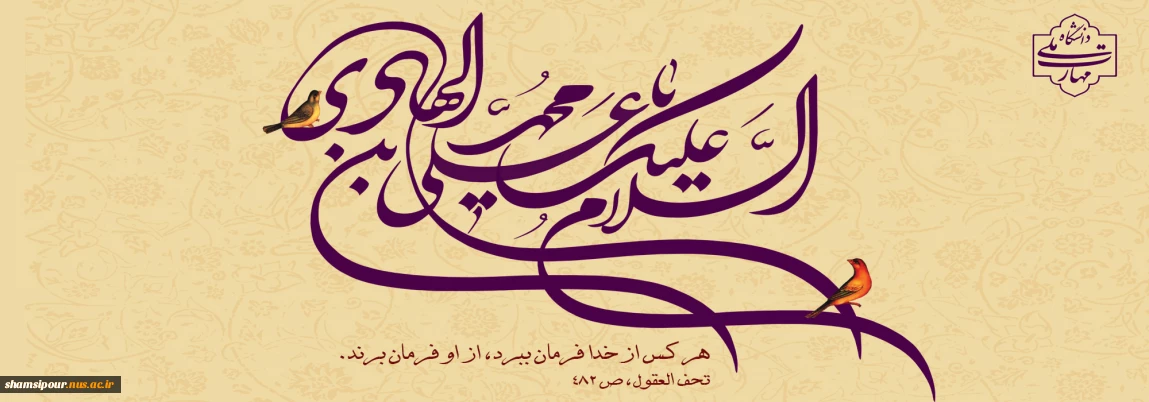 دانشگاه ملی مهارت
السلام علیک یا علی بن محمد الهادی
هر کس از خدا فرمان ببرد، از او فرمان برند.
تحف العقول، ص ۴۸۲
shamsipour.nus.ac.ir